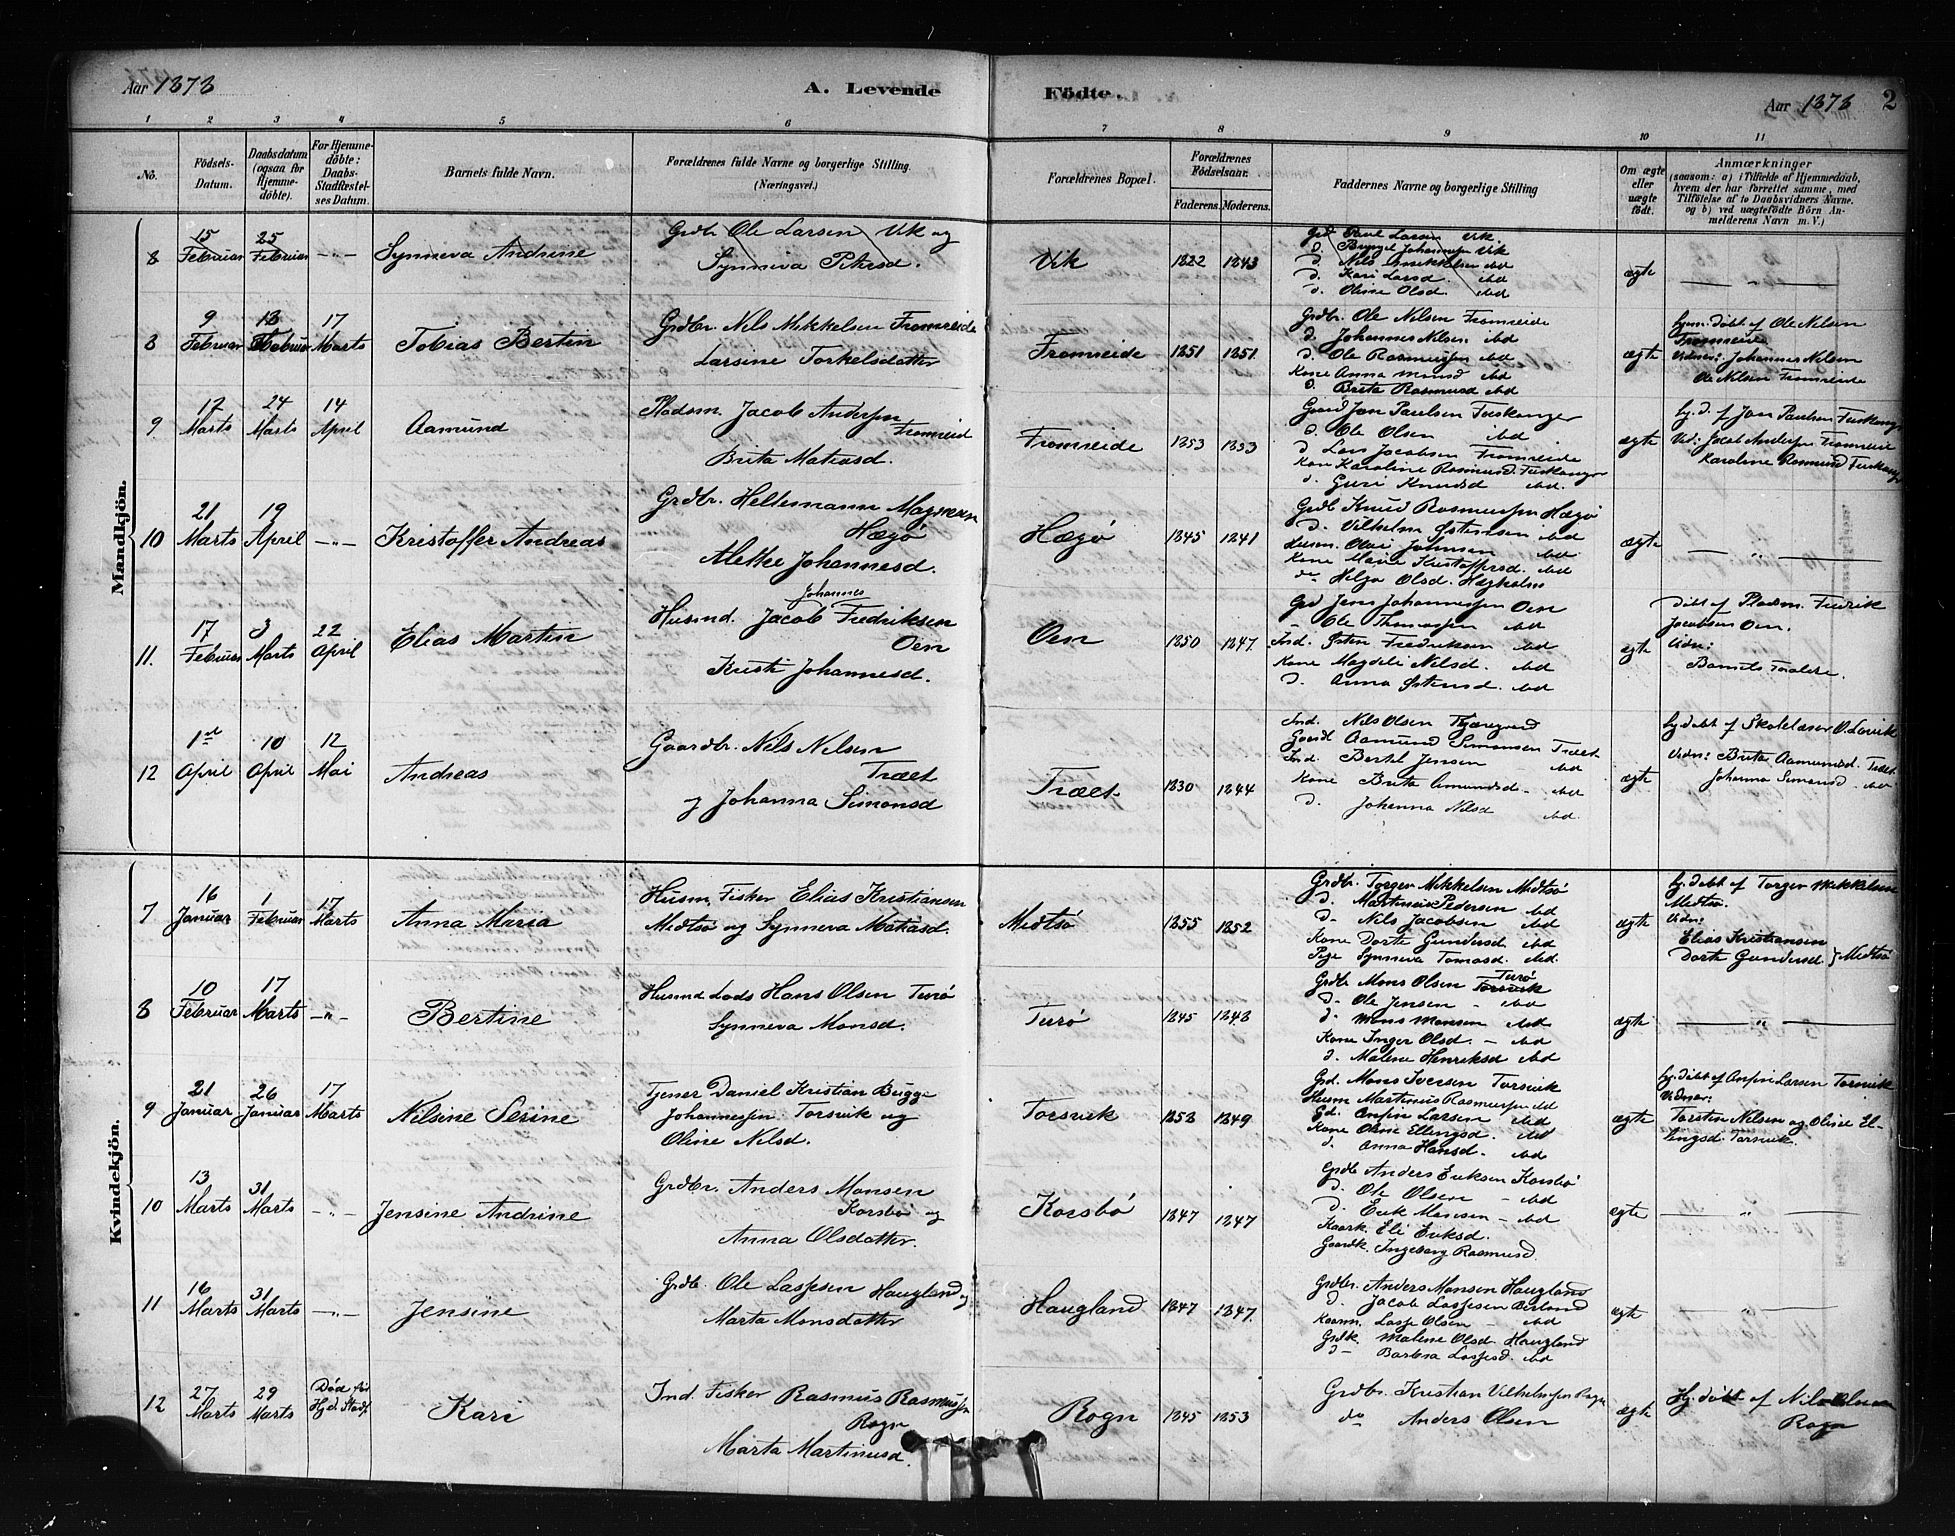 Aar 1878
A. Levende
Födte.
Aar 1878 2
1 2 3 4 5 6 7 8 9 10 11
No.
Födsels-
Datum.
Daabsdatum
(ogsaa for
Hjemme-
döbte).
For Hjemme-
döbte:
Daabs-
Stadfæstel-
ses Datum.
Barnets fulde Navn.
Forældrenes fulde Navne og borgerlige Stilling.
(Næringsvei.)
Forældrenes Bopæl.
Forældrenes
Födselsaar.
Faderens. Moderens.
Faddernes Navne og borgerlige Stilling
Om ægte
eller
uægte
født.
Anmærkninger
(saasom: a) i Tilfælde af Hjemmedaab,
hvem der har forrettet samme, med
Tilföielse af to Daabsvidners Navne.
og b) ved uægtefödte Börn An-
melderens Navn m. V.)
Mandkjön.
8
15 Februar
25 Februar
-"-
Synneva Andrine
Grdbr. Ole Larsen Vik og
Synneva Petersd.
Vik
1822 1843
Grd Larsen Vik
d. Johannessen Vik
d. Nils ibd
d. Kari Larsd. ibd
d. Oline Olsd. ibd
ægte
-"-
8
9 Februar
13 Februar
17 Marts
Tobias Bertin
Grdbr. Nils Mikkelsen Fromreide
Larsine Torkelsdatter
Fromreide
1851 1851
Grdbr. Ole Nilsen Fromreide
d. Johannes Nilsen ibd
d. Ole Rasmussen ibd
Kone Anna Monsd ibd
d. Brita Rasmusd ibd
ægte
hjm. døbt af Ole Nilsen
Fromreide
Vidner: Johannes Nilsen
Ole Nilsen Fromreide
9
12 Marts
24 Marts
14 April
Aamund
Pladsm. Jacob Andersen
Fromreid
Brita Matiasd.
Fromreide
1853 1853
Gaard Jon Paulsen Turkanger
d. Ole Olsen ibd
d. Lars Jacobsen Fromreide
Kone Karoline Rasmusd
d. Guri Knudsd ibd.
ægte
hj. d. af Jon Paulsen
Vid: Jacob Andersen Fromreide
Karoline Rasmusd
10
21 Marts
19 April
-"-
Kristoffer Andreas
Grdbr. Heltemann Magnesen
Hægø
Alekke Johannesd.
Hægø
1845 1841
Grdb Knud Rasmussen Hægø
d. Vilhelm Østensen ibd
Johnsen ibd
Kone Marie Kristoffersd. ibd
do Helga Olsd. Hægholm
ægte
-"-
11.
17 Februar
3 Marts
22 April
Elias Martin
Johannes
Husmd. Jacob Fredriksen
Oen
Kristi Johannesd.
Oen
1850 1847.
Grd Jens Johannessen Oen
" Ole Thomassen ibd
Ind. Østen Fredriksen ibd
Kone Magdeli Nilsd. ibd
d. Anna Østensd. ibd
ægte
Døbt af Pladsm. Fredrik
Jacobsen Oen.
Vidn:
Barnets Forældre.
12
1ste April
10 April
12 Mai
Andreas
Gaardbr. Nils Nilsen
Træet
og Johanna Simonsd
Træet.
1830 1844
Ind. Nils Olsen
Gaard Aamund Simonsen Træet
Ind Bertel Jensen ibd
Kone Brita ibd
d. Johanna Nilsd ibd.
ægte
hj. døbt af Skolelærer O. Lavik
Vidn: Brita Aamundsd. Træet
Johanna Simonsd. ibd
Kvindekjön.
7
16 Januar
1 Februar
17 Marts
Anna Maria
Husm. Fisker Elias Kristiansen
Medtsø og Synneva Matiasd.
Medtsø
1855 1852
Grdbr. Torger Mikkelsen Medtsø
d. Martinus Pedersen ibd
d- Nils Jacobsen ibd
Kone Dorte Gundersd. ibd
Pige Synneva Tomasd. ibd.
ægte
hj. døbt af Torger Mikkelsen
Medtsø.
Vidn:
Elias Kristiansen
Dorte Gundersd } Medtsø
8
10 Februar
17 Marts
-"-
Bertine
Husmd Lods Hans Olsen Turø
Synneva Monsd.
Turø
1845 1848
Grdbr Mons Olsen Torsvik Turø
d. Ole Jensen - ibd
d. Mons Monsen ibd
Kone Inger Olsd. - ibd
d. Malene Henriksd ibd
ægte
-"-
9
21 Januar
26 Januar
17 Marts
Nilsine Serine
Tjener Daniel Kristian Bugge
Johannessen Torsvik og
Oline Nilsd.
Torsvik
1853 1849
Grd. Mons Iversen Torsvik
Husm Martinus Rasmussen ibd
Gd. Anfin Larsen ibd
Kone Oline Ellingsd. ibd
d. Anna Hansd. ibd
ægte
hj. døbt af Anfin Larsen Torsvik
Vidner:
Torstin Nilsen og Oline El-
lingsd Torsvik.
10
13 Marts
31 Marts
-"-
Jensine Andrine
Grdbr. Anders Monsen
Korsbø og
Anna Olsdatter.
Korsbø
1847 1847
Grdb Anders Eriksen Korsbø
d. Ole Olsen - ibd
d. Erik Monsen - ibd
Kaark. Eli Eriksd.
Gaardk. Ingeborg Rasmusd
ægte
-"-
11
16 Marts
31 Marts
-"-
Jensine
Grdb. Ole Lassesen Haugland og
Marta Monsdatter
Haugland
1847 1847.
Grdbr. Anders Monsen Haugland
d. Jacob Lassesen Berland
Lasse Olsen - ibd
Grdk. Malene Olsd Haugland
d- Barbra Lassesd. ibd
ægte
-"-
12
27 Marts
29 Marts
Død før
Hjd. Stadf.
Kari
Ind. Fisker Rasmus Rasmussen
Rogn
Marta Martinusd.
Rogn
1845 1853
Grdbr. Kristian Vilhelmsen Rogn
do Anders Olsen
ægte
Hj. døbt af Nils Olsen
Rogn